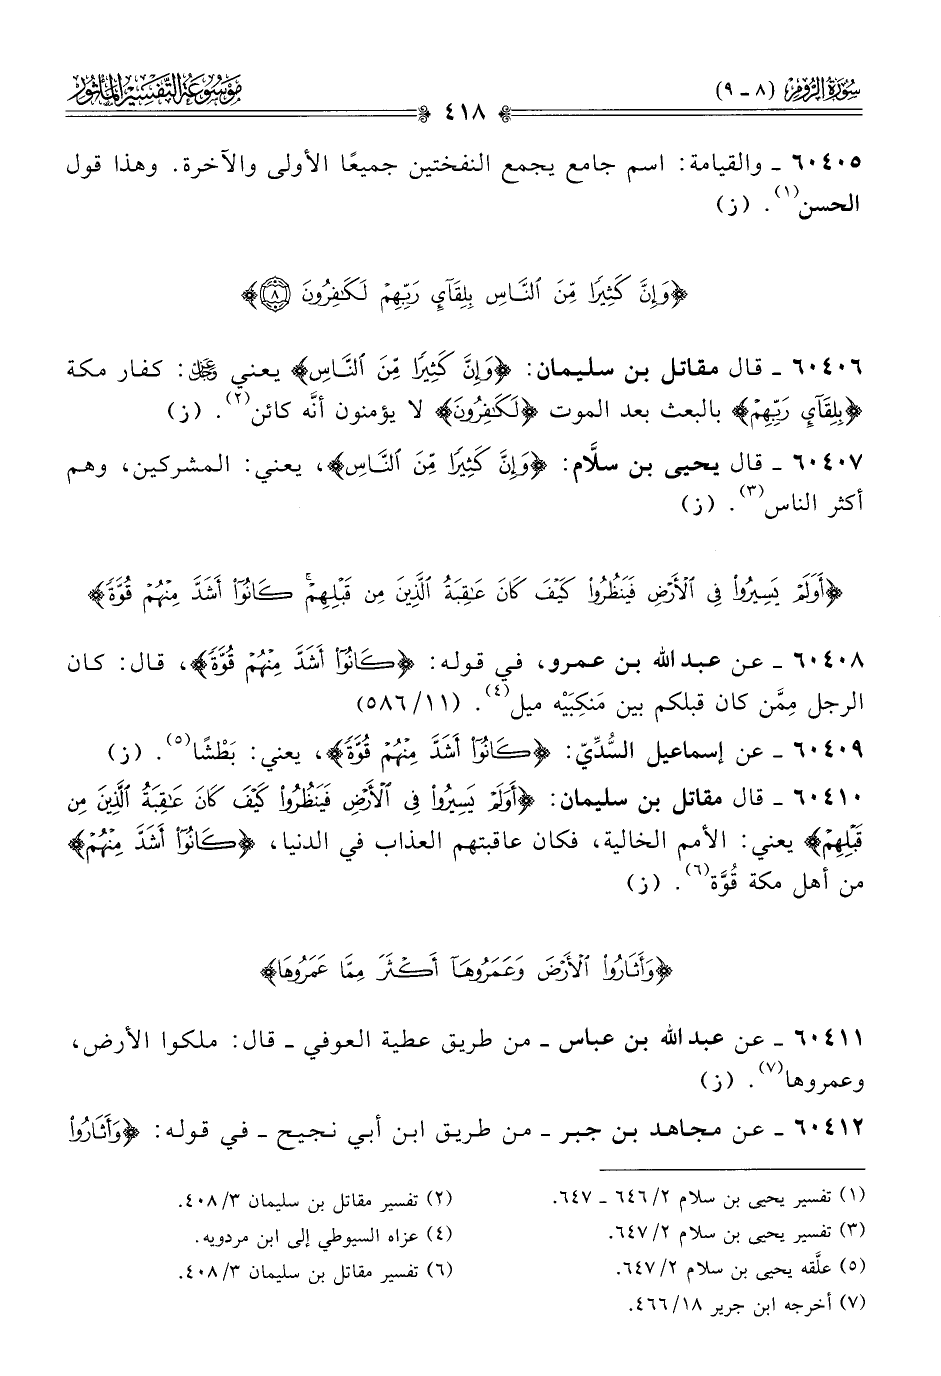 سُورَةُ الرُّومِ (٨ - ٩)
مَوْسُوعَةُ التَّفْسِيرِ المَأْثُور
٤١٨
٦٠٤٠٥ - والقيامة: اسم جامع يجمع النفختين جميعًا الأولى والآخرة. وهذا قول
الحسن(١). (ز)
﴿وَإِنَّ كَثِيرًا مِّنَ ٱلنَّاسِ بِلِقَآيِٕ رَبِّهِمْ لَكَٰفِرُونَ ٨﴾
٦٠٤٠٦ - قال مقاتل بن سليمان: ﴿وَإِنَّ كَثِيرًا مِّنَ ٱلنَّاسِ﴾ يعني عز وجل: كفار مكة
﴿بِلِقَآيِٕ رَبِّهِمْ﴾ بالبعث بعد الموت ﴿لَكَٰفِرُونَ﴾ لا يؤمنون أنَّه كائن(٢). (ز)
٦٠٤٠٧ - قال يحيى بن سلَّام: ﴿وَإِنَّ كَثِيرًا مِّنَ ٱلنَّاسِ﴾، يعني: المشركين، وهم
أكثر الناس(٣). (ز)
﴿أَوَلَمْ يَسِيرُوا۟ فِى ٱلْأَرْضِ فَيَنظُرُوا۟ كَيْفَ كَانَ عَٰقِبَةُ ٱلَّذِينَ مِن قَبْلِهِمْ ۚ كَانُوٓا۟ أَشَدَّ مِنْهُمْ قُوَّةً﴾
٦٠٤٠٨ - عن عبد الله بن عمرو، في قوله: ﴿كَانُوٓا۟ أَشَدَّ مِنْهُمْ قُوَّةً﴾، قال: كان
الرجل مِمَّن كان قبلكم بين مَنكِبَيْه ميل(٤). (١١/ ٥٨٦)
٦٠٤٠٩ - عن إسماعيل السُّدِّيّ: ﴿كَانُوٓا۟ أَشَدَّ مِنْهُمْ قُوَّةً﴾، يعني: بَطْشًا(٥). (ز)
٦٠٤١٠ - قال مقاتل بن سليمان: ﴿أَوَلَمْ يَسِيرُوا۟ فِى ٱلْأَرْضِ فَيَنظُرُوا۟ كَيْفَ كَانَ عَٰقِبَةُ ٱلَّذِينَ مِن
قَبْلِهِمْ﴾ يعني: الأمم الخالية، فكان عاقبتهم العذاب في الدنيا، ﴿كَانُوٓا۟ أَشَدَّ مِنْهُمْ﴾
من أهل مكة قُوَّة(٦). (ز)
﴿وَأَثَارُوا۟ ٱلْأَرْضَ وَعَمَرُوهَآ أَكْثَرَ مِمَّا عَمَرُوهَا﴾
٦٠٤١١ - عن عبد الله بن عباس - من طريق عطية العوفي - قال: ملكوا الأرض،
وعمروها(٧). (ز)
٦٠٤١٢ - عن مجاهد بن جبر - من طريق ابن أبي نجيح - في قوله: ﴿وَأَثَارُوا۟
(١) تفسير يحيى بن سلام ٢/ ٦٤٦ - ٦٤٧.
(٢) تفسير مقاتل بن سليمان ٣/ ٤٠٨.
(٣) تفسير يحيى بن سلام ٢/ ٦٤٧.
(٤) عزاه السيوطي إلى ابن مردويه.
(٥) علَّقه يحيى بن سلام ٢/ ٦٤٧.
(٦) تفسير مقاتل بن سليمان ٣/ ٤٠٨.
(٧) أخرجه ابن جرير ١٨/ ٤٦٦.